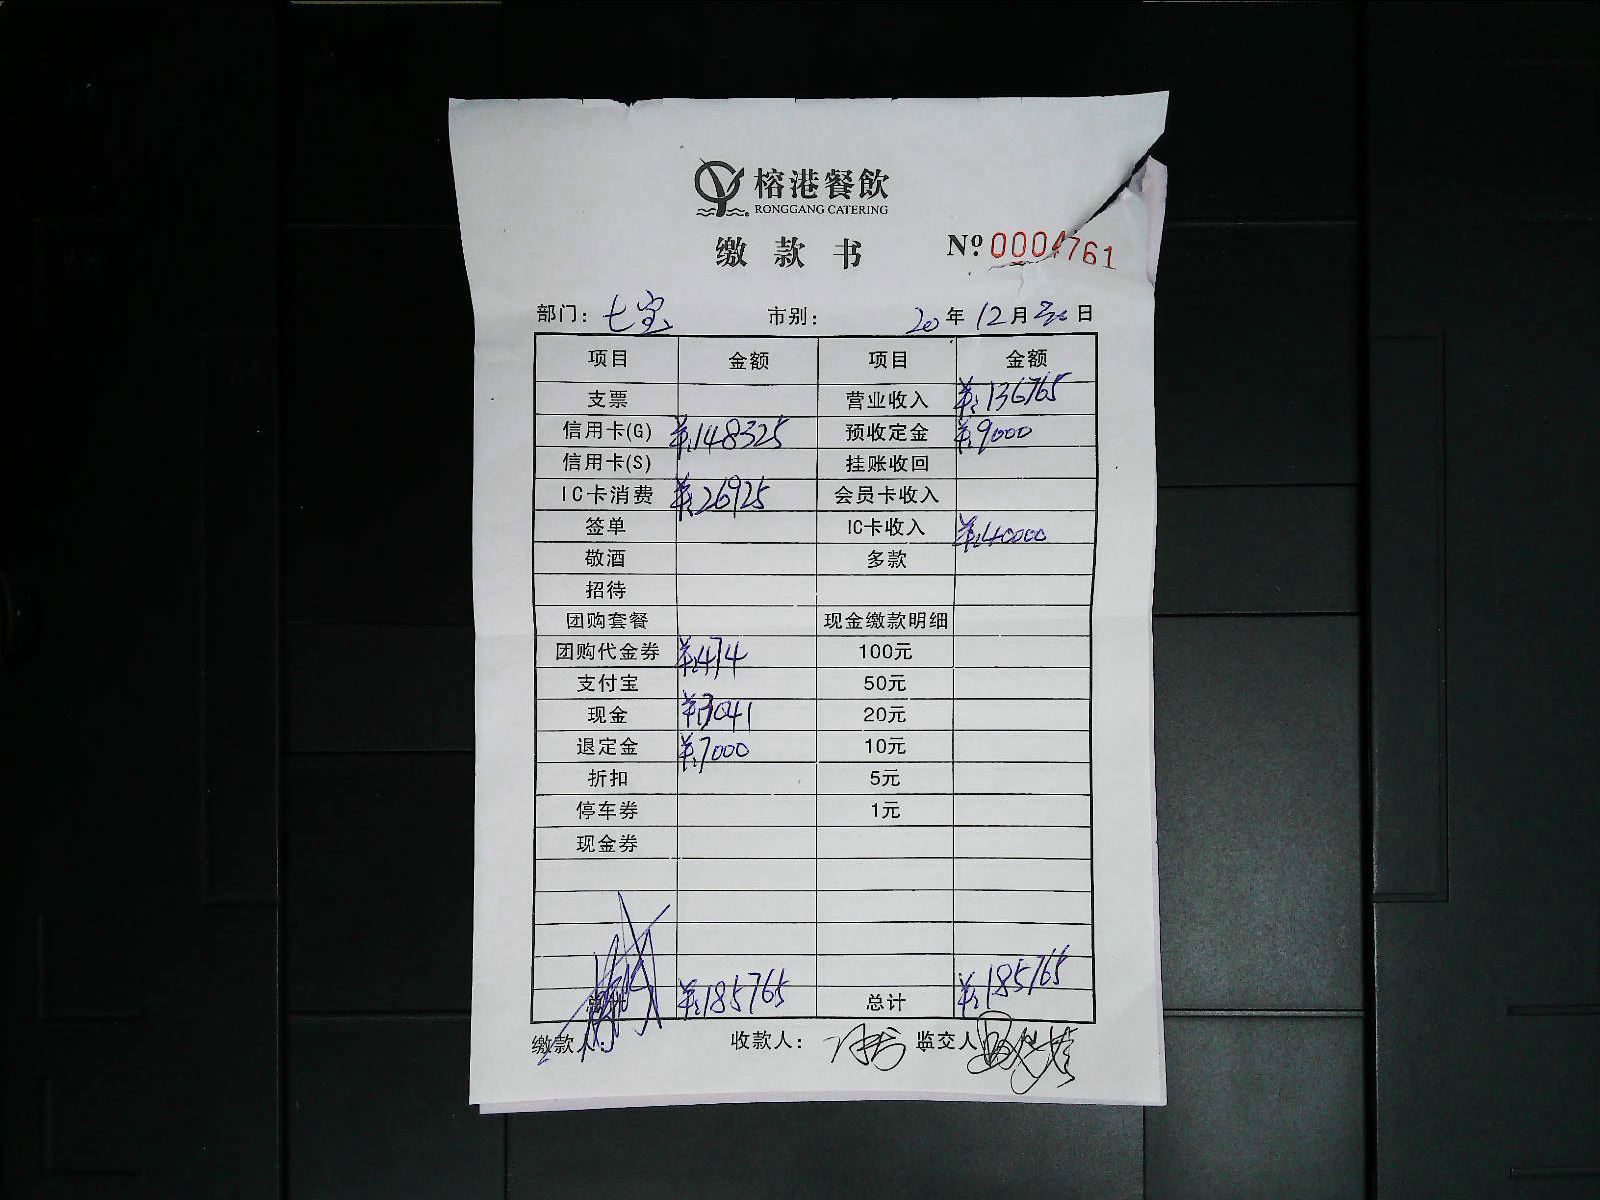 榕港餐飲
RONGGANG CATERING
缴款书 Nº 0004761
部门: 七宝 市别: 20年12月30日
项目 金额 项目 金额
支票 营业收入 ¥:136765
信用卡(G) ¥:148325 预收定金 ¥:9000
信用卡(S) 挂账收回
IC卡消费 ¥:26925 会员卡收入
签单 IC卡收入 ¥:40000
敬酒 多款
招待
团购套餐 现金缴款明细
团购代金券 ¥:474 100元
支付宝 50元
现金 ¥:3041 20元
退定金 ¥:7000 10元
折扣 5元
停车券 1元
现金券
总计 ¥:185765 总计 ¥:185765
缴款人: 收款人: 监交人